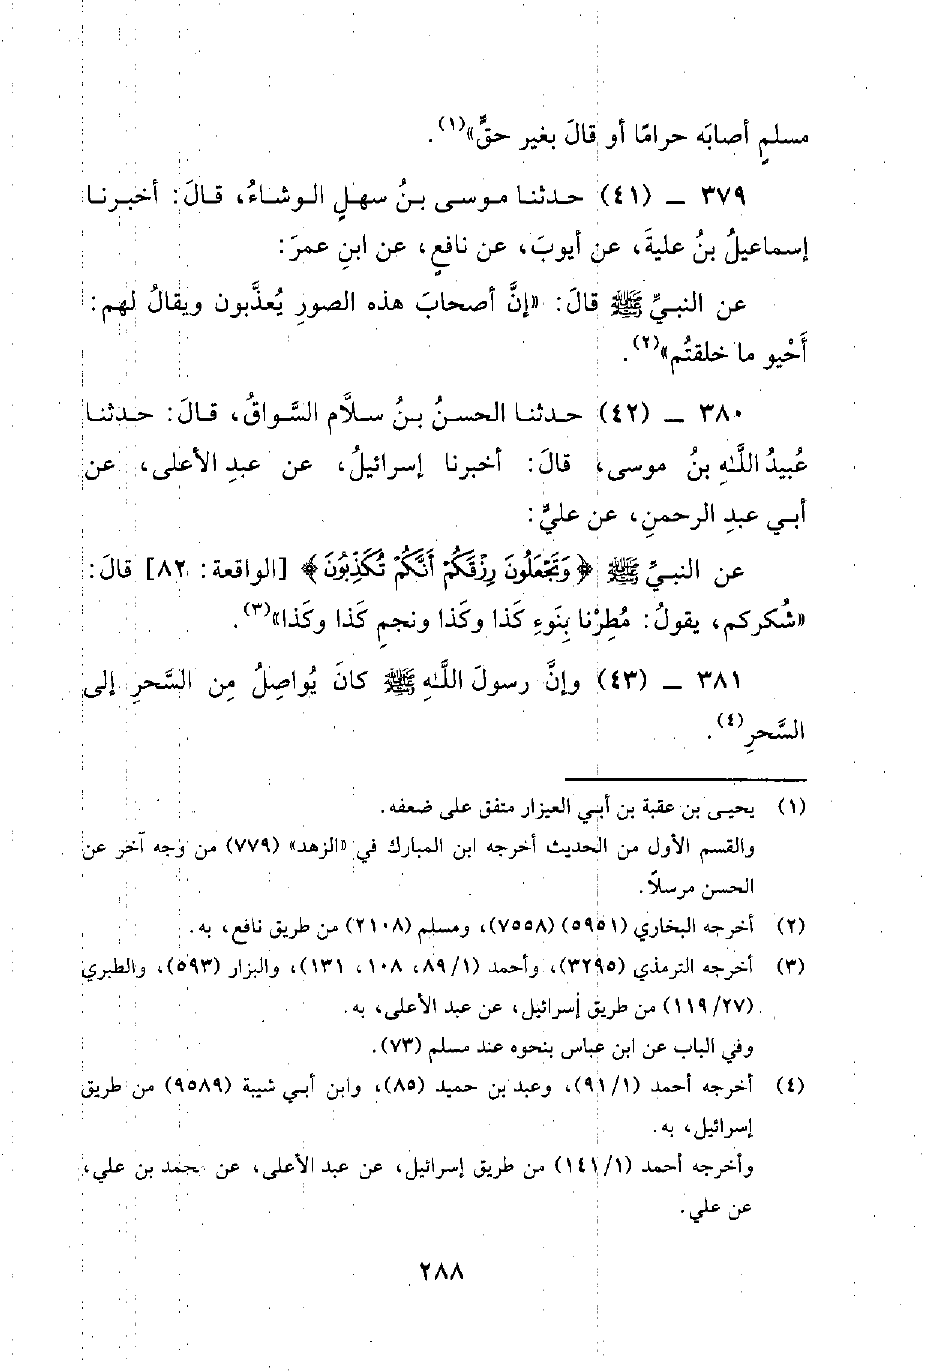 مسلمٍ أصابَه حرامًا أو قالَ بغير حقٍّ»(١).
٣٧٩ ـ (٤١) حدثنا موسى بنُ سهلٍ الوشاءُ، قالَ: أخبرنا
إسماعيلُ بنُ عليةَ، عن أيوبَ، عن نافعٍ، عن ابنِ عمرَ:
عن النبيِّ ﷺ قالَ: «إنَّ أصحابَ هذه الصورِ يُعذَّبون ويقالُ لهم:
أَحْيو ما خلقتُم»(٢).
٣٨٠ ـ (٤٢) حدثنا الحسنُ بنُ سلَّام السَّواقُ، قالَ: حدثنا
عُبيدُ اللَّهِ بنُ موسى، قالَ: أخبرنا إسرائيلُ، عن عبدِ الأعلى، عن
أبي عبدِ الرحمنِ، عن عليٍّ:
عن النبيِّ ﷺ ﴿وَتَجْعَلُونَ رِزْقَكُمْ أَنَّكُمْ تُكَذِّبُونَ﴾ [الواقعة: ٨٢] قالَ:
«شُكركم، يقولُ: مُطِرْنا بِنَوءِ كَذا وكَذا ونجمِ كَذا وكَذا»(٣).
٣٨١ ـ (٤٣) وإنَّ رسولَ اللَّهِ ﷺ كانَ يُواصِلُ مِن السَّحرِ إلى
السَّحرِ(٤).
(١) يحيى بن عقبة بن أبي العيزار متفق على ضعفه.
والقسم الأول من الحديث أخرجه ابن المبارك في «الزهد» (٧٧٩) من وجه آخر عن
الحسن مرسلاً.
(٢) أخرجه البخاري (٥٩٥١) (٧٥٥٨)، ومسلم (٢١٠٨) من طريق نافع، به.
(٣) أخرجه الترمذي (٣٢٩٥)، وأحمد (٨٩/١، ١٠٨، ١٣١)، والبزار (٥٩٣)، والطبري
(١١٩/٢٧) من طريق إسرائيل، عن عبد الأعلى، به.
وفي الباب عن ابن عباس بنحوه عند مسلم (٧٣).
(٤) أخرجه أحمد (٩١/١)، وعبد بن حميد (٨٥)، وابن أبي شيبة (٩٥٨٩) من طريق
إسرائيل، به.
وأخرجه أحمد (١٤١/١) من طريق إسرائيل، عن عبد الأعلى، عن محمد بن علي،
عن علي.
٢٨٨